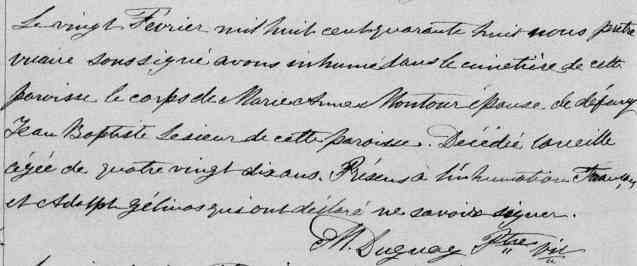 Le vingt Février mil huit cent quarante huit nous prêtre
vicaire soussigné avons inhumé dans le cimetière de cette
paroisse le corps de Marie Anne Montour épouse de défunt
Jean Baptiste Lesieur de cette paroisse. Décédée la veille
âgée de quatre vingt dix ans. Présens à l'inhumation François
et Adolph Gélinas qui ont déclaré ne savoir signer.
Duguay Ptre Vic